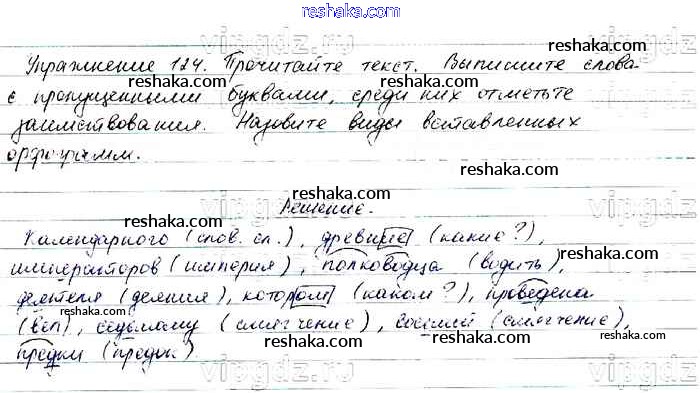 reshaka.com
Упражнение 124. Прочитайте текст. Выпишите слова
reshaka.com
с пропущенными буквами, среди них отметьте
reshaka.com
заимствования. Назовите виды вставленных
reshaka.com
орфограмм.
reshaka.com
Решение.
reshaka.com
Календарного (слов. сл.), древние (какие?),
reshaka.com
императоров (империя), полководца (водить),
reshaka.com
деятеля (деяния), котором (каком?), проведена
reshaka.com
(вел), седьмому (смягчение), восьмой (смягчение),
reshaka.com
предки (предок).
reshaka.com
vipgdz.ru